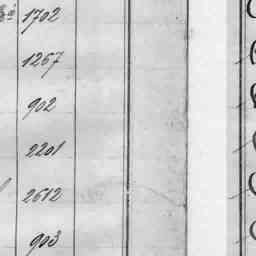 1702
1257
902
2201
2612
903